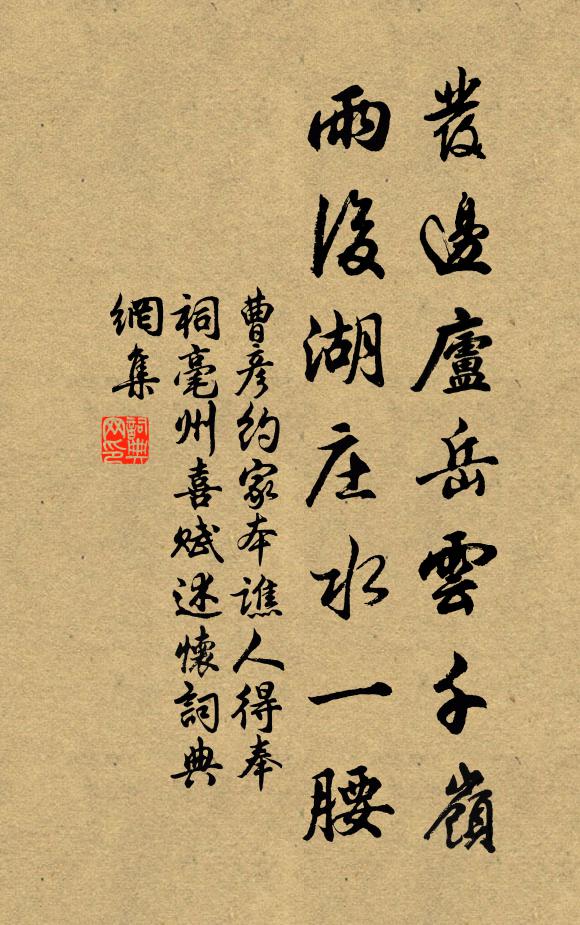 叢邊廬岳雲千嶺
雨後湖庄水一腰
曹彥約家本譙人得奉
祠毫州喜賦述懷詞典
網集
詞典
网印